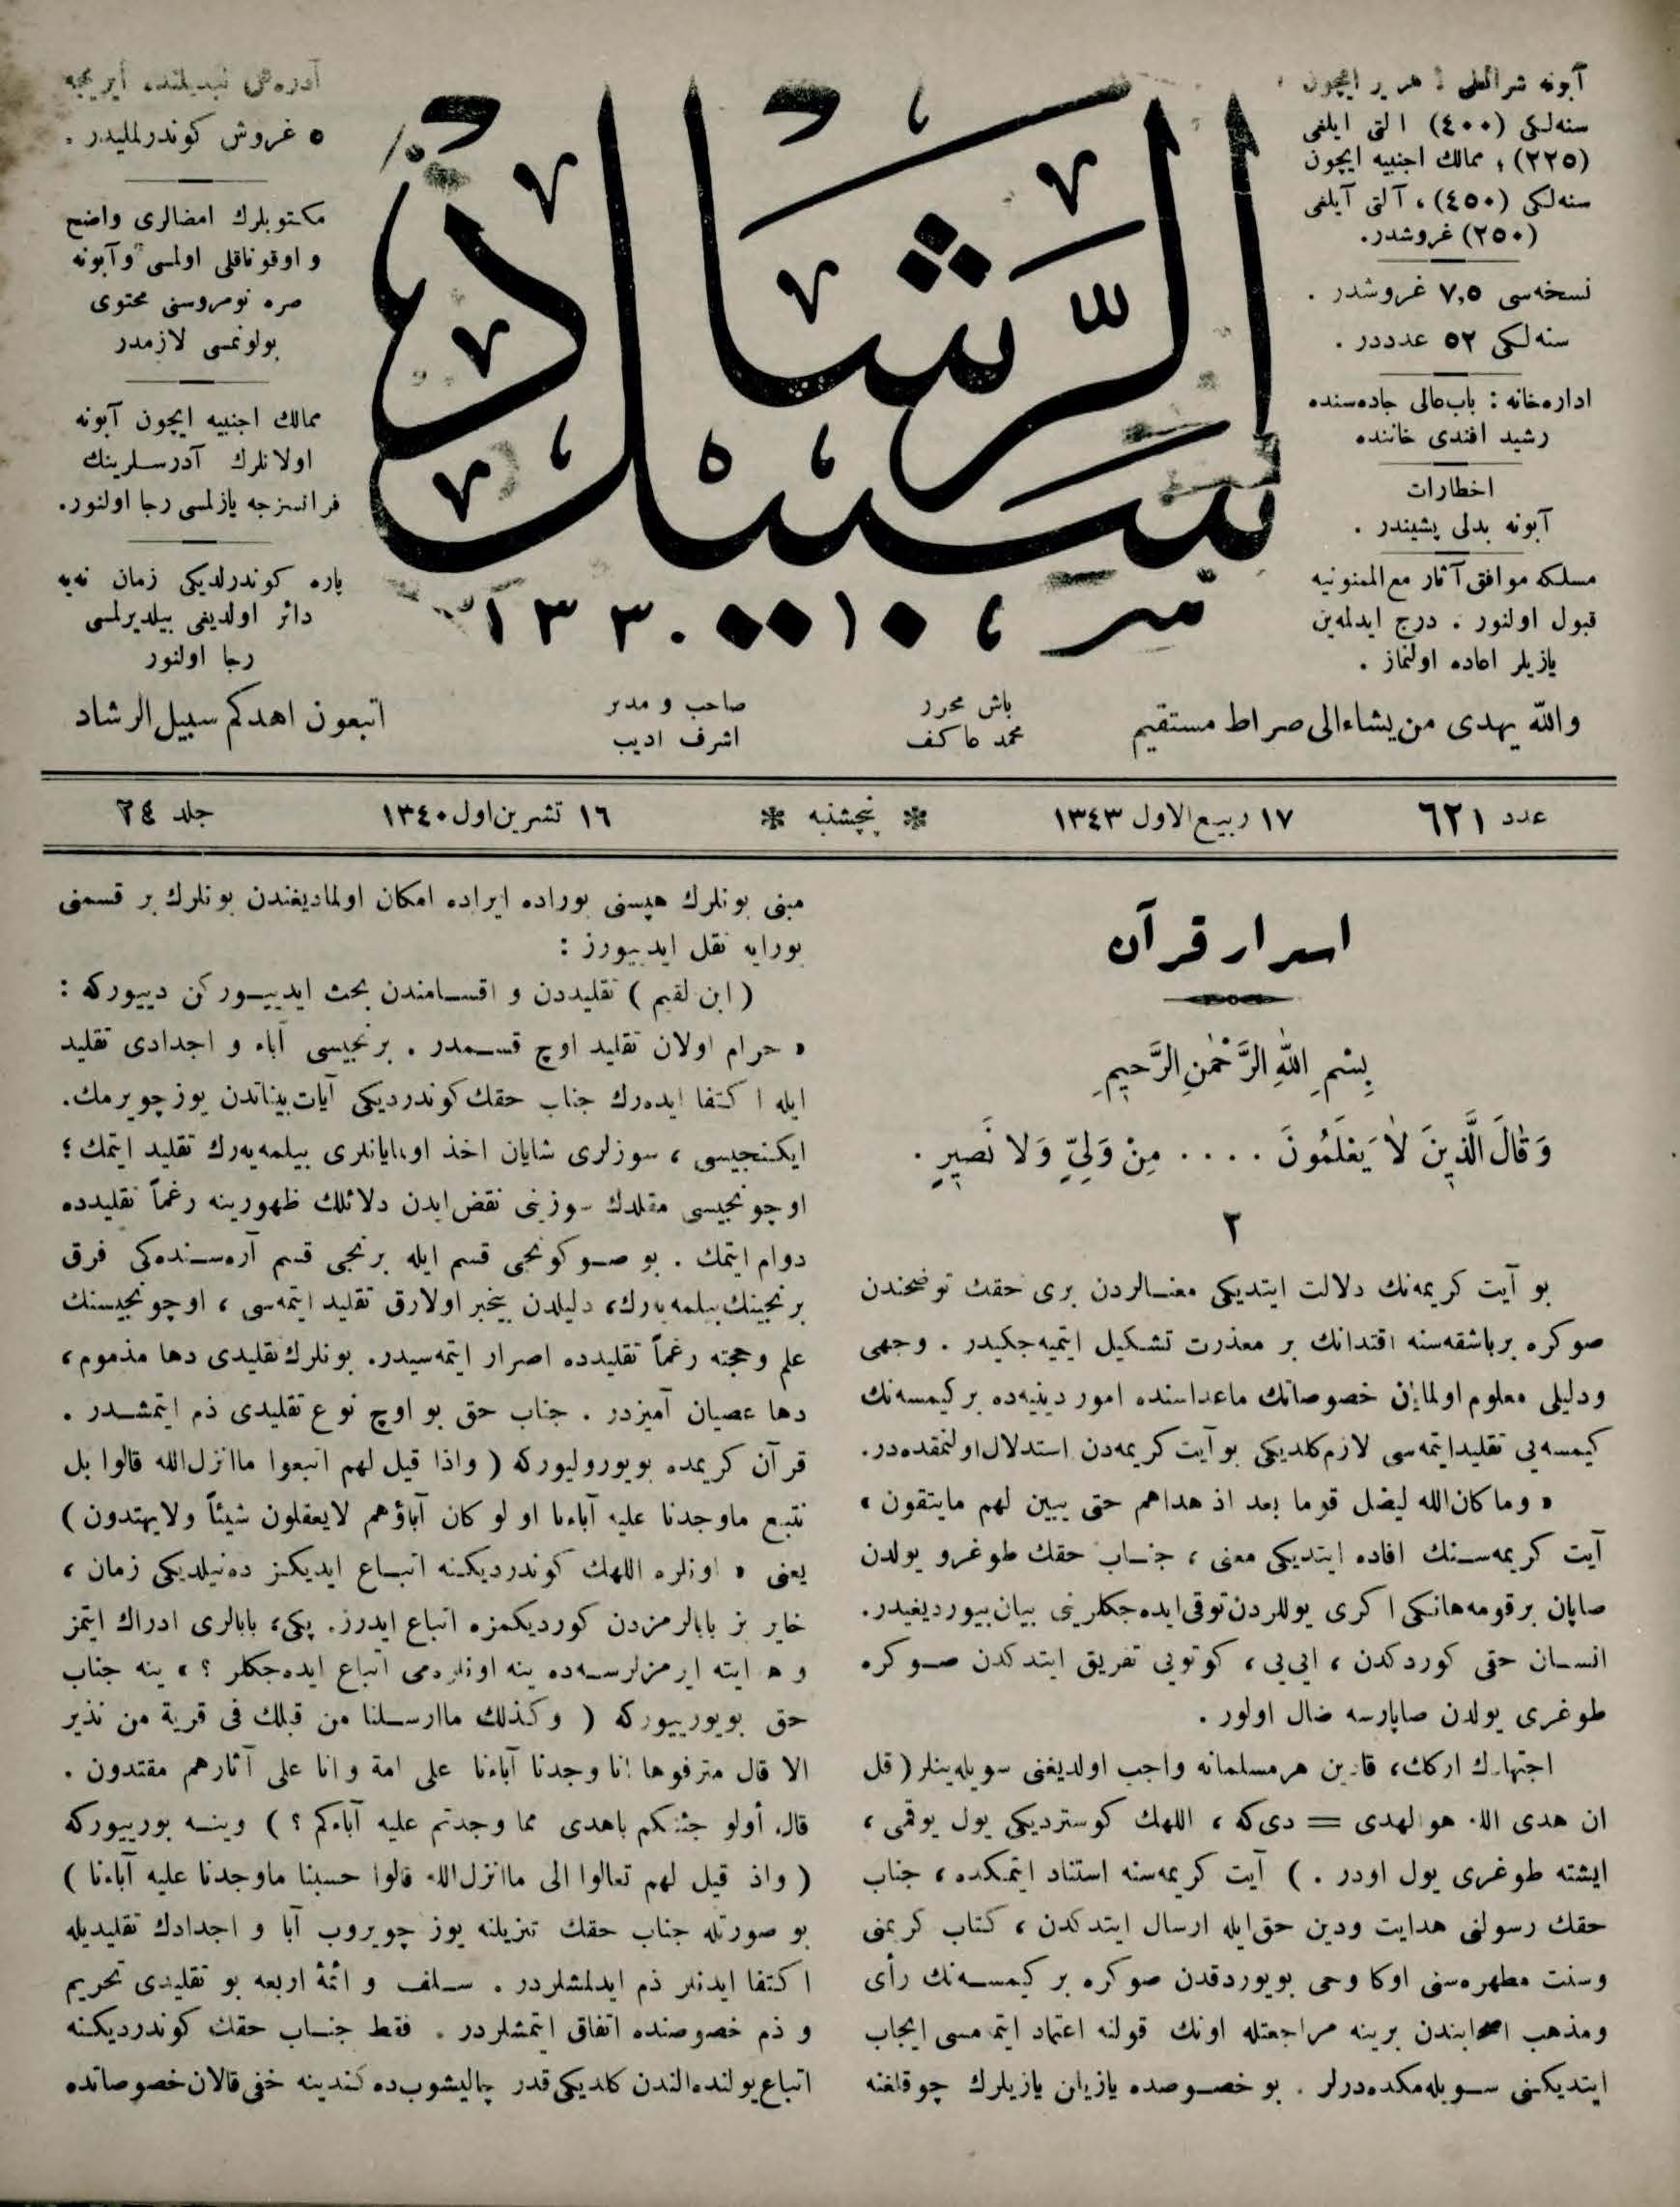 آبونه شرائطی : هر یر ایچون
سنه‌لكی (٤٠٠) التی ایلغی
(٢٢٥) ، ممالك اجنبیه ایچون
سنه‌لكی (٤٥٠) ، آلتی آیلغی
(٢٥٠) غروشدر.
نسخه‌سی ٧,٥ غروشدر .
سنه‌لكی ٥٢ عدددر .
اداره‌خانه : باب‌عالی جاده‌سنده
رشید افندی خاننده
اخطارات
آبونه بدلی پشیندر .
مسلكه موافق آثار مع‌الممنونیه
قبول اولنور . درج ایدلمه‌ین
یازیلر اعاده اولنماز .
سبیل الرشاد
١٣٣٠
آدره‌س تبدیلنده آیریجه
٥ غروش كوندرلملیدر .
مكتوبلرك امضالری واضح
و اوقوناقلی اولمسی و آبونه
صره نومروسنی محتوی
بولونمسی لازمدر
ممالك اجنبیه ایچون آبونه
اولانلرك آدرسلرینك
فرانسزجه یازلمسی رجا اولنور.
پاره كوندرلدیكی زمان نه‌یه
دائر اولدیغی بیلدیرلمسی
رجا اولنور
والله یهدی من یشاء الی صراط مستقیم
باش محرر
محمد عاكف
صاحب و مدیر
اشرف ادیب
اتبعون اهدكم سبیل الرشاد
عدد ٦٢١
١٧ ربیع‌الاول ١٣٤٣
❊ پنجشنبه ❊
١٦ تشرین‌اول ١٣٤٠
جلد ٢٤
اسرار قرآن
بِسْمِ اللهِ الرَّحْمٰنِ الرَّحِیمِ
وَقَالَ الَّذِینَ لاٰ یَعْلَمُونَ .... مِنْ وَلِیٍّ وَلاٰ نَصِیرٍ .
٢
بو آیت كریمه‌نك دلالت ایتدیكی معنالردن بری حقك توضحندن
صوكره برباشقه‌سنه اقتدانك بر معذرت تشكیل ایتمیه‌جكیدر . وجهی
ودلیلی معلوم اولمایان خصوصاتك ماعداسنده امور دینیه‌ده بر كیمسه‌نك
كیمسه‌یی تقلیدایتمه‌سی لازم‌كلدیكی بو آیت كریمه‌دن استدلال‌اولنمقده‌در.
« وما كان‌الله لیضل قوما بعد اذ هداهم حتی یبین لهم مایتقون »
آیت كریمه‌سنك افاده ایتدیكی معنی ، جناب حقك طوغرو یولدن
صاپان برقومه هانكی اكری یوللردن توقی ایده‌جكلرینی بیان بیوردیغیدر.
انسان حقی كوردكدن ، ایی‌یی ، كوتویی تفریق ایتدكدن صوكره
طوغری یولدن صاپارسه ضال اولور .
اجتهادك اركك ، قادین هرمسلمانه واجب اولدیغنی سویله‌ینلر ( قل
ان هدی الله هوالهدی = دی‌كه ، اللهك كوستردیكی یول یوقمی ،
ایشته طوغری یول اودر . ) آیت كریمه‌سنه استناد ایتمكده ، جناب
حقك رسولنی هدایت ودین حق‌ایله ارسال ایتدكدن ، كتاب كریمنی
وسنت مطهره‌سنی اوكا وحی بویوردقدن صوكره بر كیمسه‌نك رأی
ومذهب اصحابندن برینه مراجعتله اونك قولنه اعتماد ایتمه‌سی ایجاب
ایتدیكنی سویله‌مكده‌درلر . بو خصوصده یازیلان یازیلرك چوقلغنه
مبنی بونلرك هپسنی بوراده ایراده امكان اولمادیغندن بونلرك بر قسمنی
بورایه نقل ایدییورز :
( ابن لقیم ) تقلیددن و اقسامندن بحث ایدییوركن دییوركه :
« حرام اولان تقلید اوچ قسمدر . برنجیسی آباء و اجدادی تقلید
ایله اكتفا ایده‌رك جناب حقك كوندردیكی آیات بیناتدن یوز چویرمك.
ایكنجیسی ، سوزلری شایان اخذ اولمایانلری بیلمه‌یه‌رك تقلید ایتمك ؛
اوچونجیسی مقلدك سوزینی نقض ایدن دلائلك ظهورینه رغماً تقلیدده
دوام ایتمك . بو صوكونجی قسم ایله برنجی قسم آره‌سنده‌كی فرق
برنجینك بیلمه‌یه‌رك ، دلیلدن بیخبر اولارق تقلید ایتمه‌سی ، اوچونجیسنك
علم وحجته رغماً تقلیدده اصرار ایتمه‌سیدر. بونلرك تقلیدی دها مذموم ،
دها عصیان آمیزدر . جناب حق بو اوچ نوع تقلیدی ذم ایتمشدر .
قرآن كریمده بویورولیوركه ( واذا قیل لهم اتبعوا ماانزل‌الله قالوا بل
نتبع ماوجدنا علیه آباءنا او لو كان آباؤهم لایعقلون شیئاً ولایهتدون )
یعنی « اونلره اللهك كوندردیكنه اتباع ایدیكز ده‌نیلدیكی زمان ،
خایر بز بابالرمزدن كوردیكمزه اتباع ایدرز. پكی ، بابالری ادراك ایتمز
و هدایته ایرمزلرسه‌ده ینه اونلره‌می اتباع ایده‌جكلر ؟ » ینه جناب
حق بویورییوركه ( وكذلك ماارسلنا من قبلك فی قریة من نذیر
الا قال مترفوها انا وجدنا آباءنا علی امة وانا علی آثارهم مقتدون .
قال أولو جئتكم باهدی مما وجدتم علیه آباءكم ؟ ) وینه بورییوركه
( واذ قیل لهم تعالوا الی ماانزل‌الله قالوا حسبنا ماوجدنا علیه آباءنا )
بو صورتله جناب حقك تنزیلنه یوز چویروب آبا و اجدادك تقلیدیله
اكتفا ایدنلر ذم ایدلمشلردر . سلف و ائمهٔ اربعه بو تقلیدی تحریم
و ذم خصوصنده اتفاق ایتمشلردر . فقط جناب حقك كوندردیكنه
اتباع یولنده‌الندن كلدیكی قدر چالیشوب‌ده كندینه خفی قالان خصوصاتده